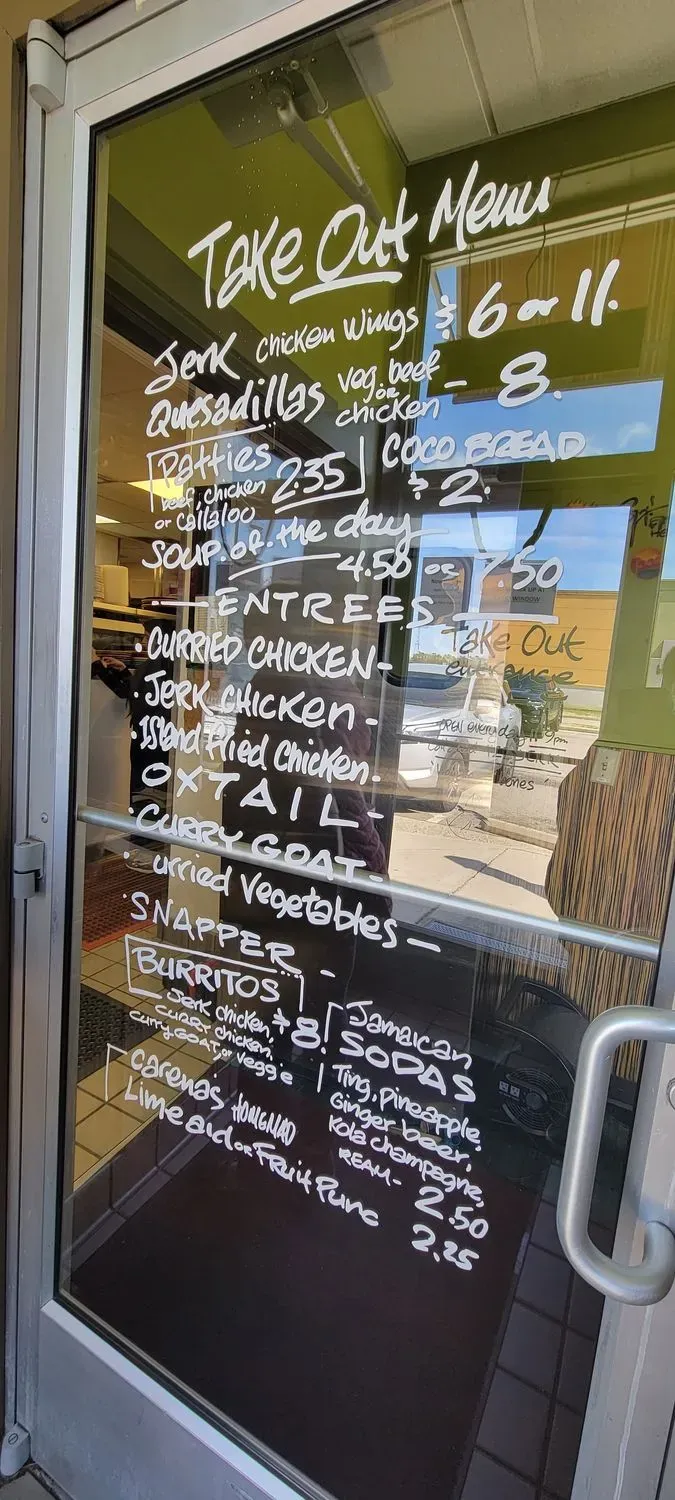 Take Out Menu
Jerk chicken wings $ 6 or 11.
Quesadillas veg. beef or chicken - 8.
Patties 2.35
beef, chicken
or callaloo
COCO BREAD
$ 2.
SOUP. of. the day
4.50 or 7.50
ENTREES
• CURRIED CHICKEN -
• JERK CHICKEN -
• Island fried Chicken -
OXTAIL -
• CURRY GOAT -
• urried Vegetables -
• SNAPPER -
BURRITOS
Jerk chicken, $8.
curry chicken,
curry GOAT, or veggie
Jamaican
SODAS
Ting, pineapple,
Ginger beer,
Kola champagne,
REAM - 2.50
carenas HOMEMAD
Limeaid or Fruit Punc 2.25
Take Out
entrance
OPEN everyday
WINDOW